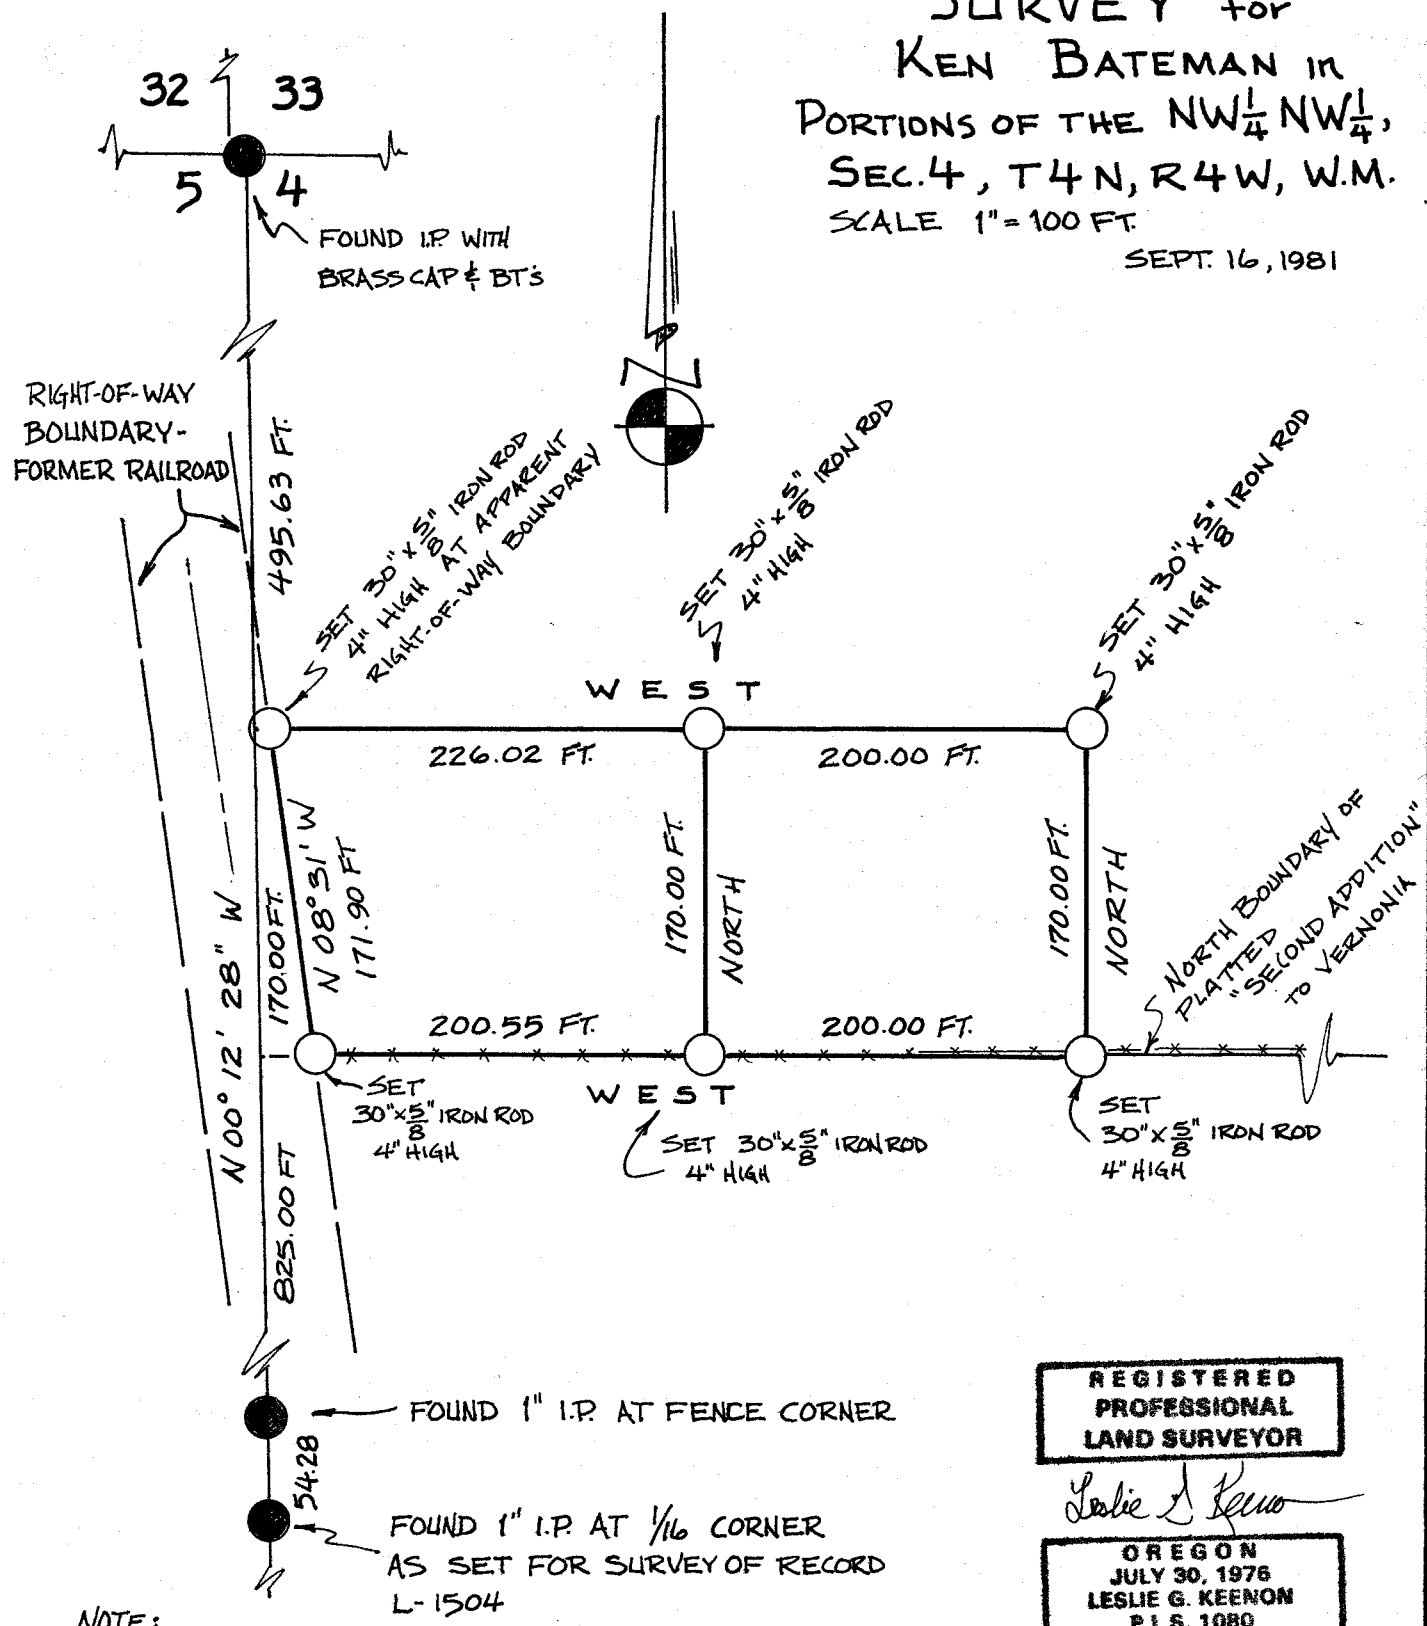 SURVEY for
KEN BATEMAN in
PORTIONS OF THE NW¼ NW¼,
SEC. 4, T4N, R4W, W.M.
SCALE 1" = 100 FT.
SEPT. 16, 1981
32 33
5 4
FOUND I.P. WITH
BRASS CAP & BT's
N
RIGHT-OF-WAY
BOUNDARY-
FORMER RAILROAD
495.63 FT.
SET 30" x 5/8" IRON ROD
4" HIGH AT APPARENT
RIGHT-OF-WAY BOUNDARY
SET 30" x 5/8" IRON ROD
4" HIGH
SET 30" x 5/8" IRON ROD
4" HIGH
WEST
226.02 FT.
200.00 FT.
N 00° 12' 28" W
170.00 FT.
N 08° 31' W
171.90 FT
170.00 FT.
NORTH
170.00 FT.
NORTH
NORTH BOUNDARY OF
PLATTED
"SECOND ADDITION"
TO VERNONIA
200.55 FT.
200.00 FT.
WEST
SET
30" x 5/8" IRON ROD
4" HIGH
SET 30" x 5/8" IRON ROD
4" HIGH
SET
30" x 5/8" IRON ROD
4" HIGH
825.00 FT
FOUND 1" I.P. AT FENCE CORNER
54.28
FOUND 1" I.P. AT 1/16 CORNER
AS SET FOR SURVEY OF RECORD
L-1504
NOTE:
REGISTERED
PROFESSIONAL
LAND SURVEYOR
Leslie G Keenon
OREGON
JULY 30, 1976
LESLIE G. KEENON
P.L.S. 1080